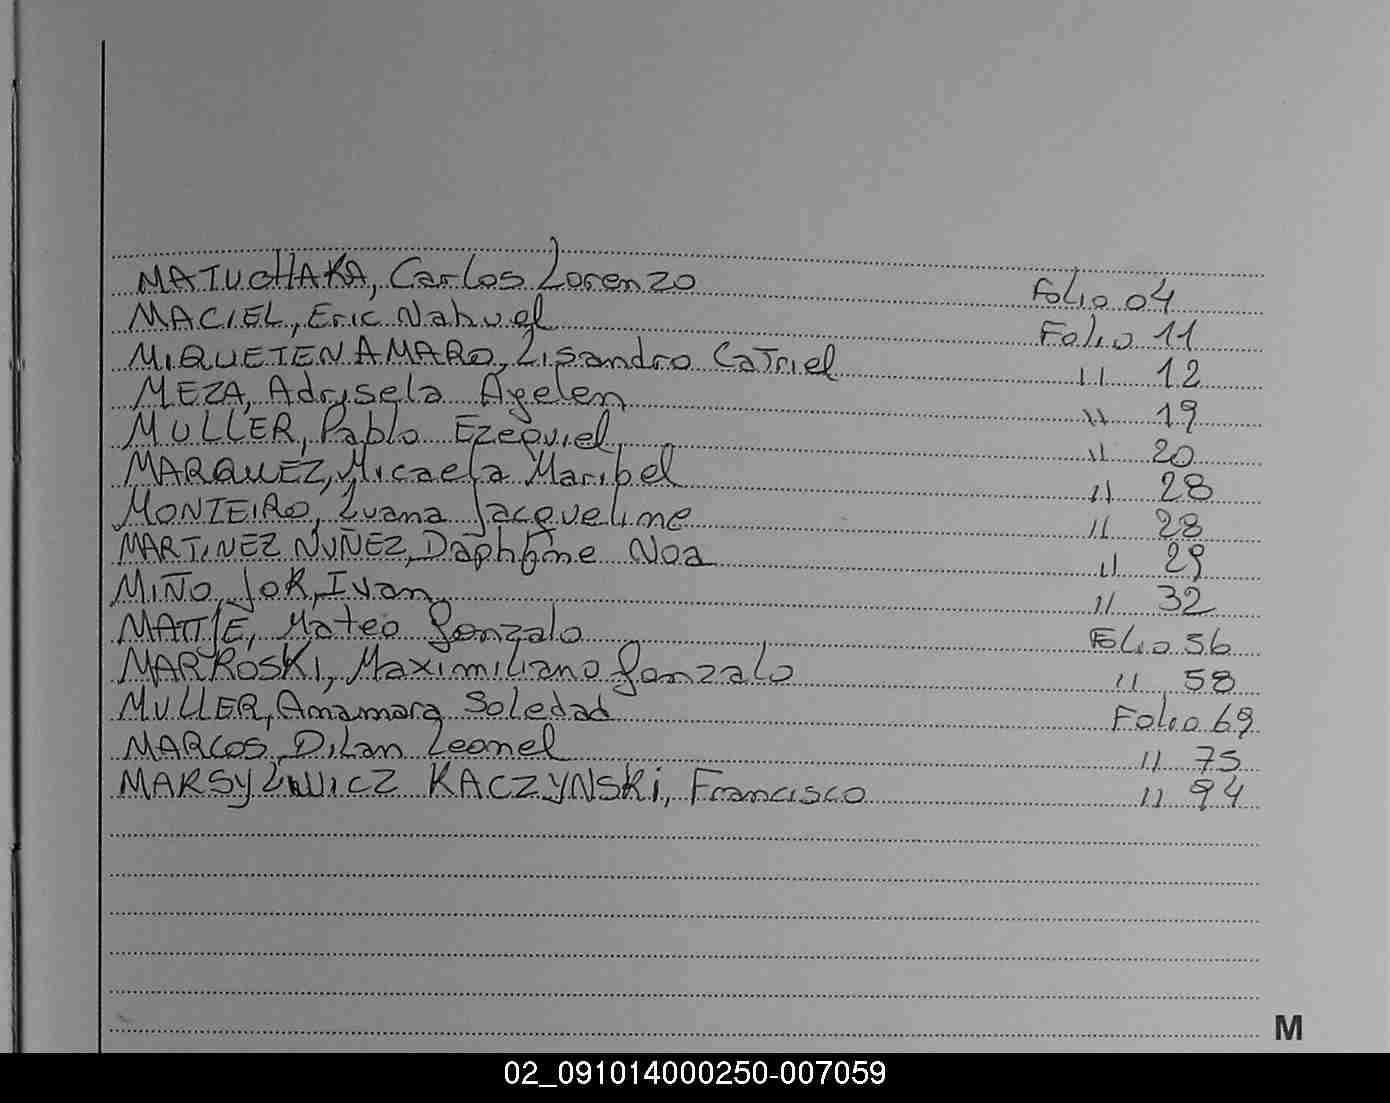 MATUCHAKA, Carlos Lorenzo Folio 04
MACIEL, Eric Nahuel Folio 11
MIQUETEN AMARO, Lisandro Catriel " 12
MEZA, Adrysela Ayelen " 19
MULLER, Pablo Ezequiel " 20
MARQUEZ, Micaela Maribel " 28
MONTEIRO, Luana Jacqueline " 28
MARTINEZ NUÑEZ, Daphne Noa " 29
MIÑO JOK, Ivan " 32
MATTJE, Mateo Gonzalo Folio 56
MARKOSKI, Maximiliano Gonzalo " 58
MULLER, Amamara Soledad Folio 69
MARCOS, Dilan Leonel " 75
KACZYNSKI, Francisco " 94
M
02_091014000250-007059